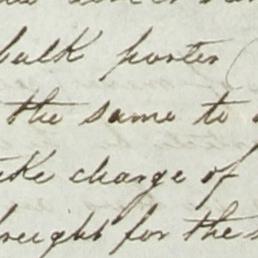 bulk porter (
the same to
take charge of
freight for the